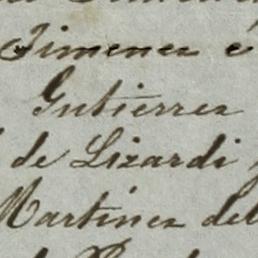 Jimenez é
Gutierrez
de Lizardi
Martinez del